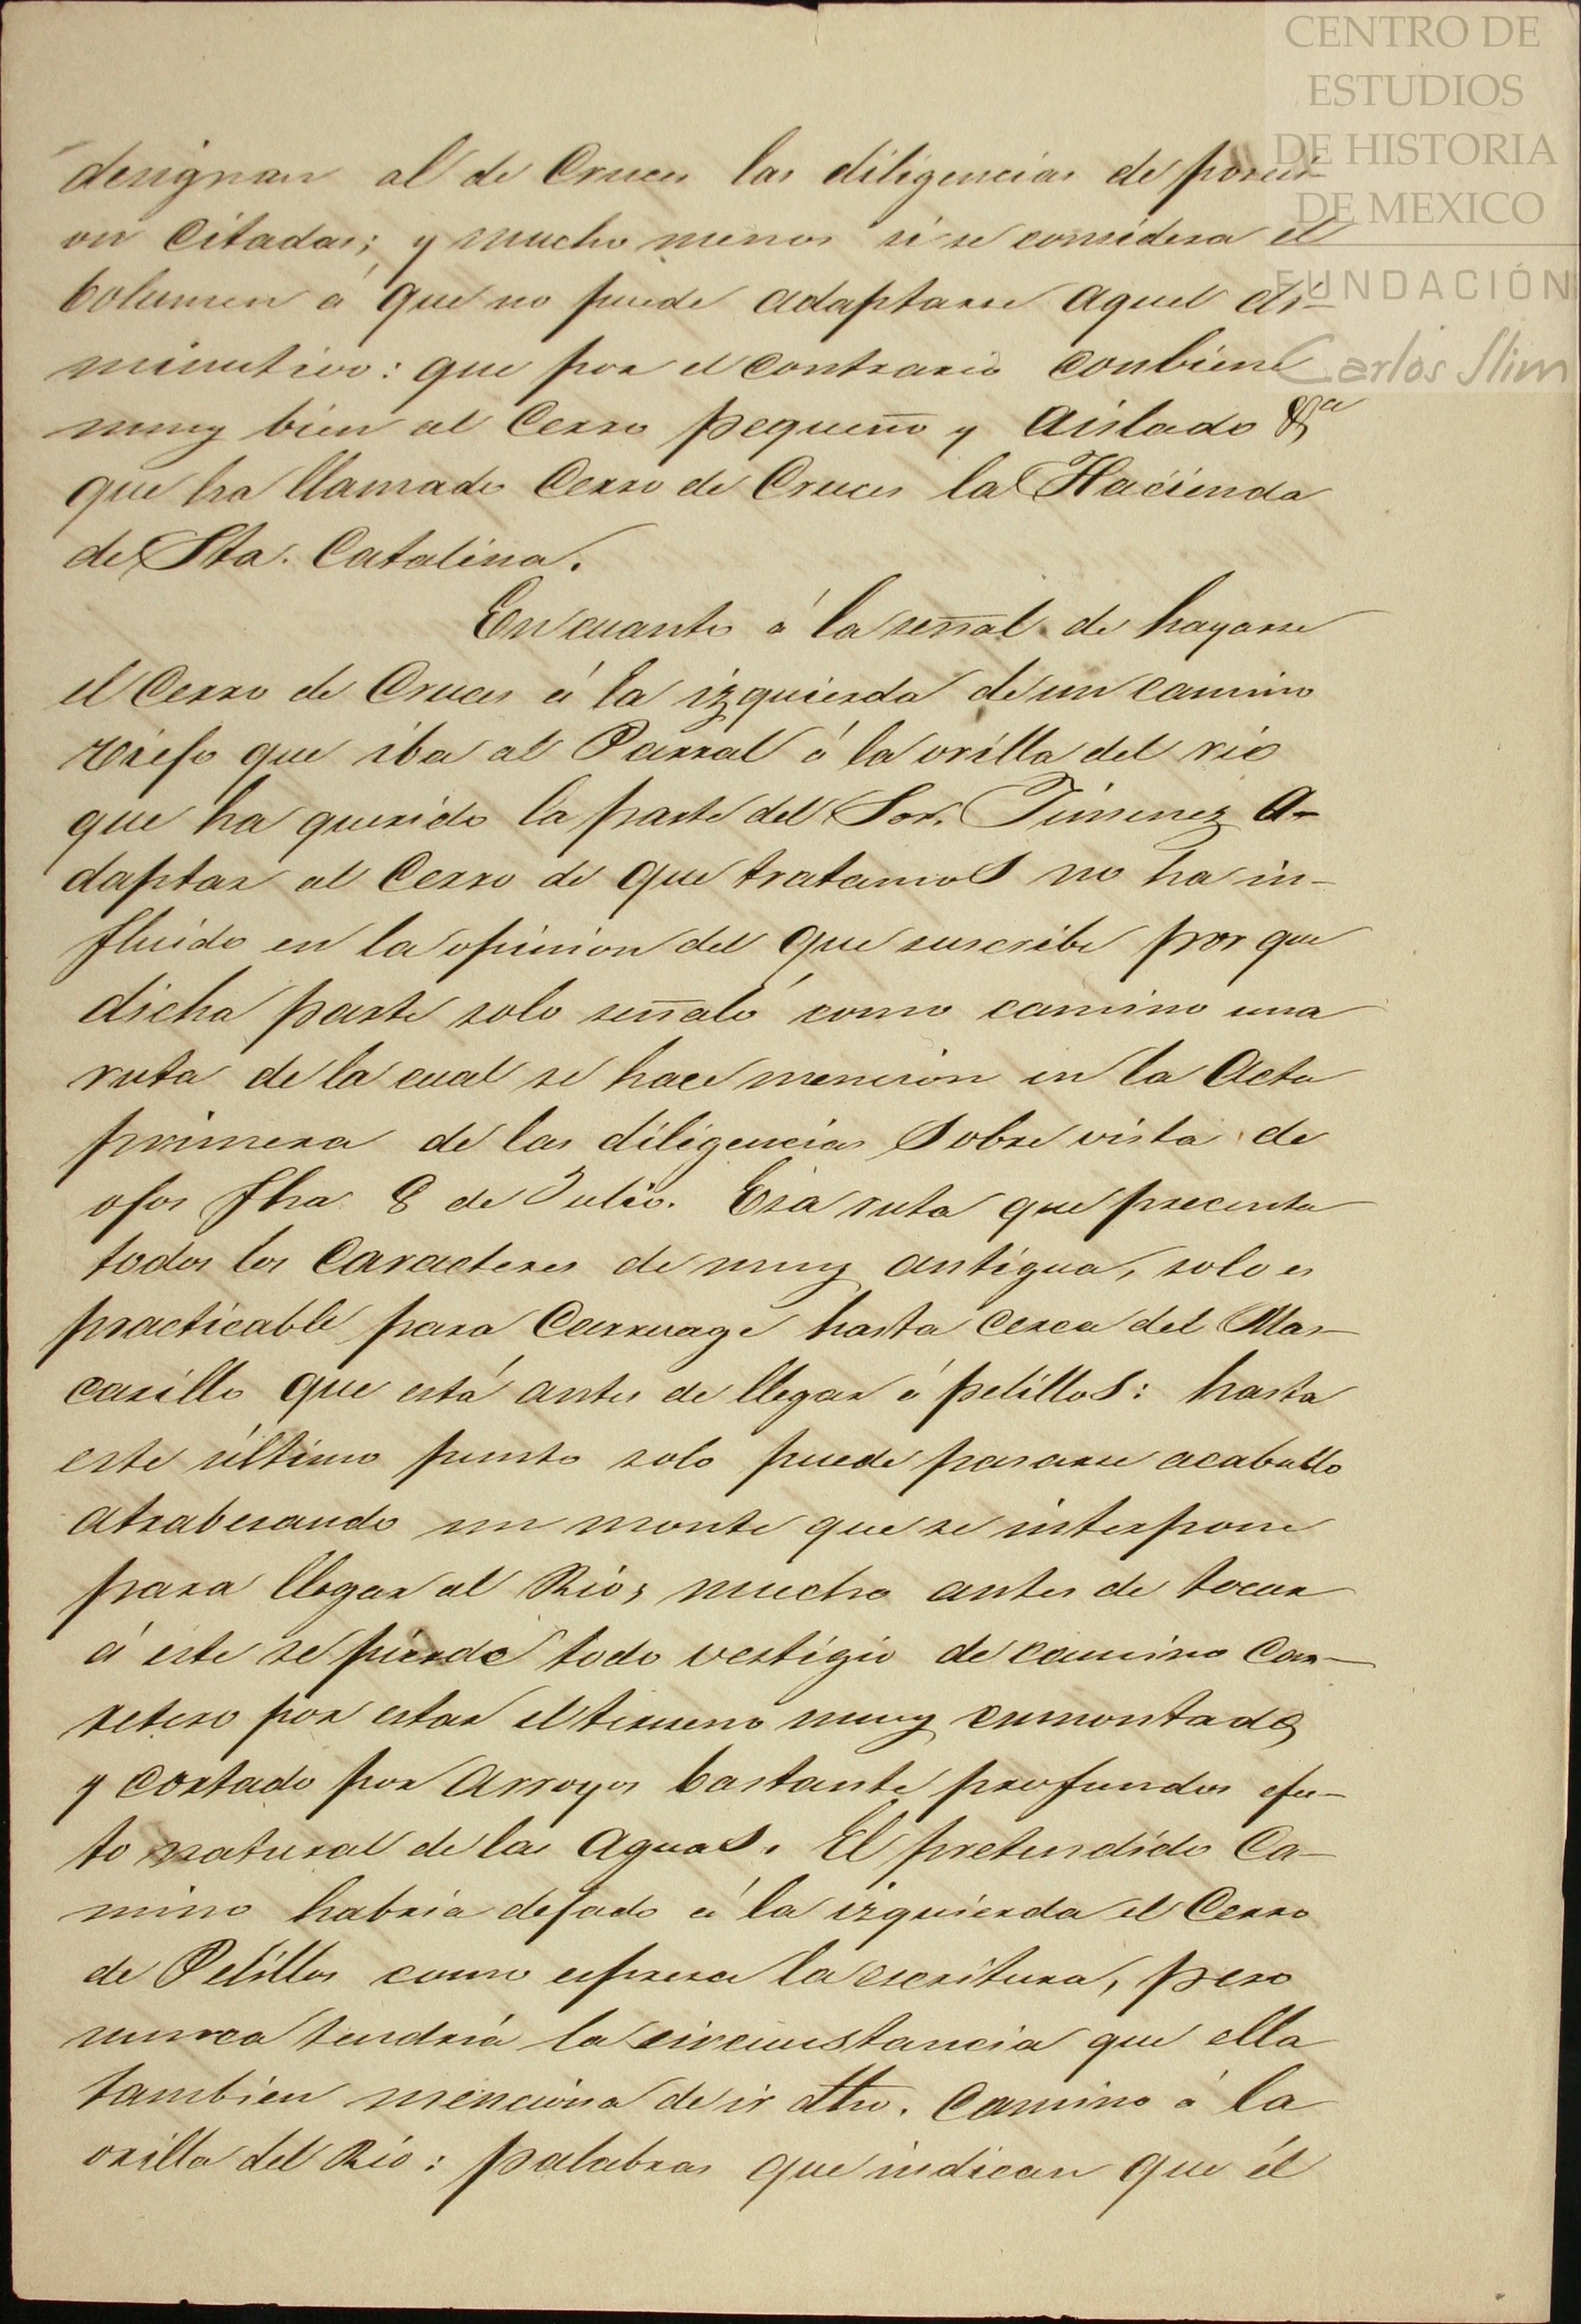 CENTRO DE
ESTUDIOS
DE HISTORIA
DE MEXICO
FUNDACIÓN
Carlos Slim
designan al de Cruces las diligencias de posesi-
on citadas; y mucho menos si se considera el
bolumen á que no puede adaptarse aquel di-
minutivo: que por el contrario conbiene
muy bien al Cerro pequeño y aislado &a
que ha llamado Cerro de Cruces la Hacienda
de Sta. Catalina.
En cuanto á la señal de hayarse
el Cerro de Cruces á la izquierda de un camino
viejo que iba al Parral á la orilla del rio
que ha querido la parte del Sor. Jimenez a-
daptar al Cerro de que tratamos no ha in-
fluido en la opinion del que suscribe por que
dicha parte solo señaló como camino una
ruta de la cual se hace mencion en la Acta
primera de las diligencias sobre vista de
ojos fha 8 de Julio. Esa ruta que precenta
todos los caracteres de muy antigua, solo es
practicable para Carruage hasta cerca del Mas-
carillo que está antes de llegar á pelillos: hasta
este último punto solo puede pasarse acaballo
atrabesando un monte que se interpone
para llegar al Rio; mucho antes de tocar
á este se pierde todo vestigio de camino Car-
retero por estar el terreno muy enmontado
y cortado por arroyos bastante profundos efec-
to natural de las aguas. El pretendido Ca-
mino habria dejado á la izquierda el Cerro
de Pelillos como espresa la escritura, pero
nunca tendria la circunstancia que ella
tambien menciona de ir dho. Camino á la
orilla del Rio: palabras que indican que él